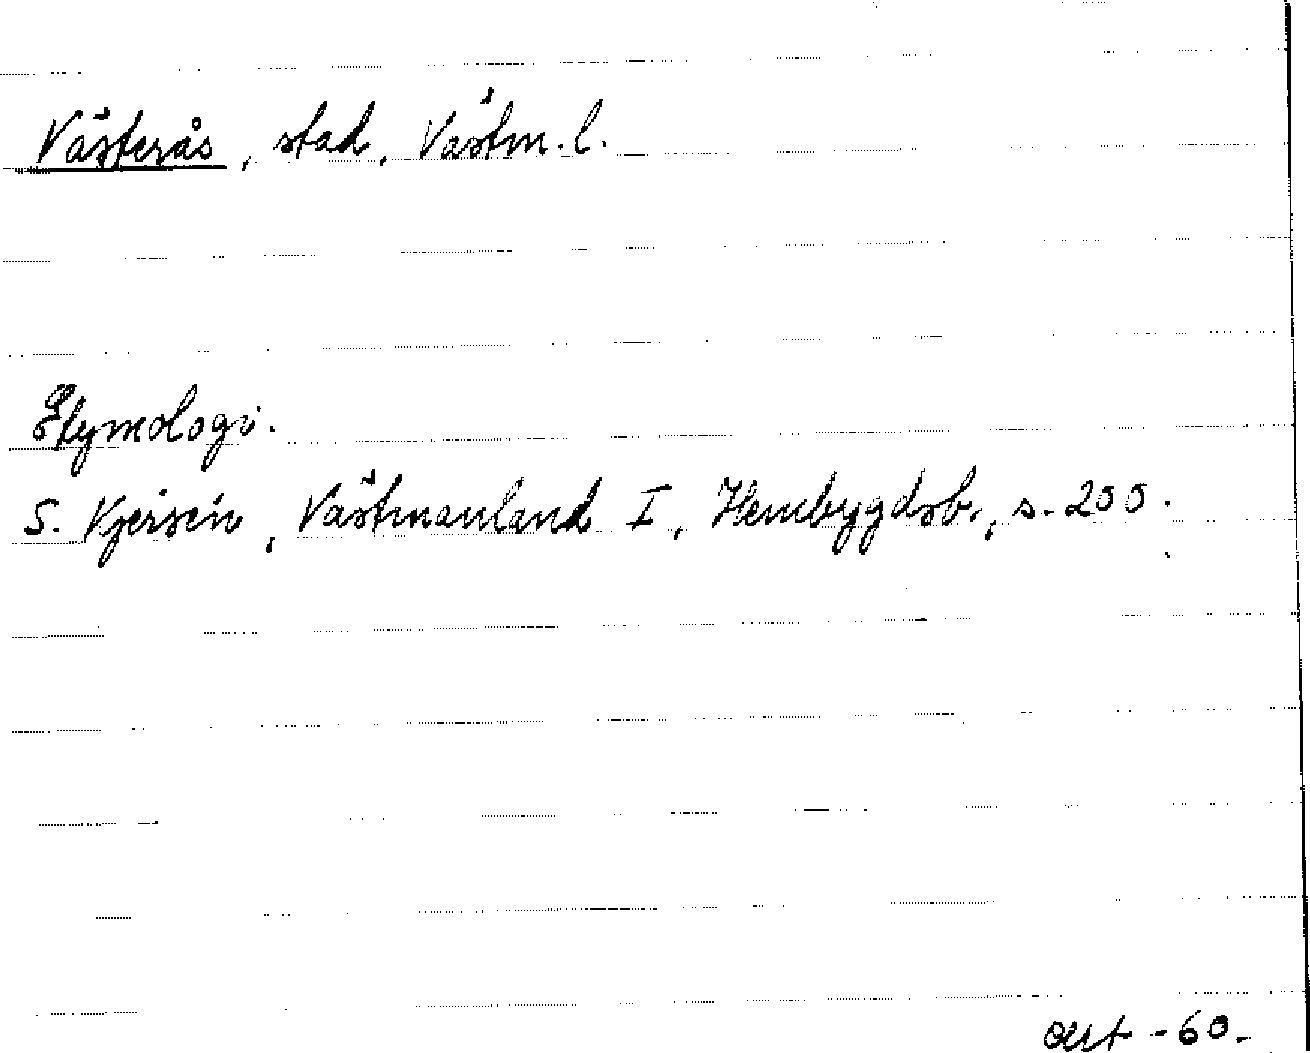 Västerås, stad, Västm. l.
Etymologi.
S. Kjersén, Västmanland I, Hembygdsb., s. 200.
-60.